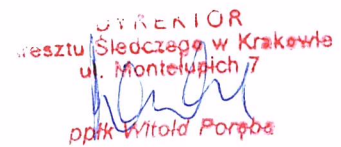 DYREKTOR
resztu Śledczego w Krakowie
ul. Montelupich 7
ppłk Witold Poręba